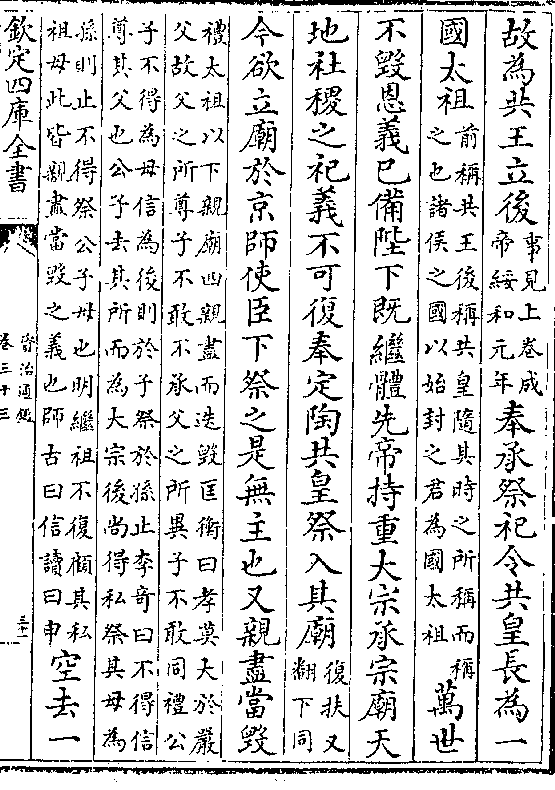 故為共王立後事見上卷成帝綏和元年奉承祭祀令共皇長為一
國太祖前稱共王後稱共皇隨其時之所稱而稱之也諸侯之國以始封之君為國太祖萬世
不毀恩義已備陛下既繼體先帝持重大宗承宗廟天
地社稷之祀義不可復奉定陶共皇祭入其廟復扶又翻下同
今欲立廟於京師使臣下祭之是無主也又親盡當毀
禮太祖以下親廟四親盡而迭毀匡衡曰孝莫大於嚴父故父之所尊子不敢不承父之所異子不敢同禮公
子不得為母信為後則於子祭於孫止李奇曰不得信尊其父也公子去其所而為大宗後尚得私祭其母為
孫則止不得祭公子母也明繼祖不復顧其私祖母此皆親盡當毀之義也師古曰信讀曰申空去一
欽定四庫全書
資治通鑑
卷三十三
三十